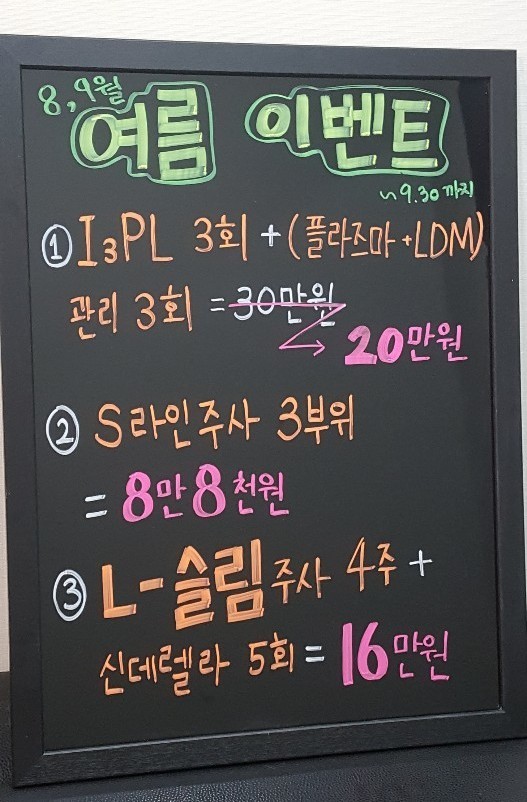 8,9월
여름 이벤트
~9.30까지
① I₃PL 3회 + (플라즈마+LDM)
관리 3회 = 30만원
→ 20만원
② S라인주사 3부위
= 8만8천원
③ L-슬림주사 4주 +
신데렐라 5회 = 16만원